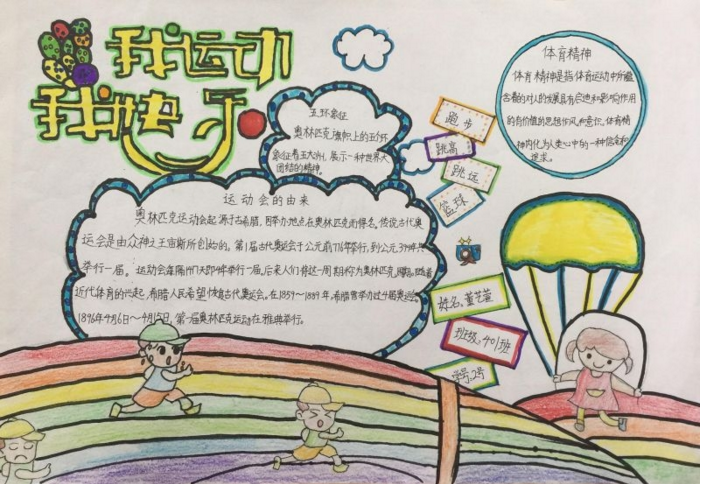 我运动
我快乐
五环象征
奥林匹克旗帜上的五个环
象征着五大洲,展示一种世界大
团结的精神。
跑步
跳高
跳远
篮球
体育精神
体育精神是指体育运动中所蕴
含着的对人的发展具有启迪和影响作用
的有价值的思想作风和意识。体育精
神内化为人类心中的一种信念和
追求。
运动会的由来
奥林匹克运动会起源于古希腊,因举办地点在奥林匹克而得名。传说古代奥
运会是由众神之王宙斯所创始的。第1届古代奥运会于公元前776年举行,到公元394年共
举行一届。运动会每隔1417天即4年举行一届,后来人们将这一周期称为奥林匹克
近代体育的兴起,希腊人民希望恢复古代奥运会。在1859~1889年,希腊曾举办过4届奥运会。
1896年4月6日~4月15日,第一届奥林匹克运动在雅典举行。
姓名:董艺萱
班级:401班
学号:2号